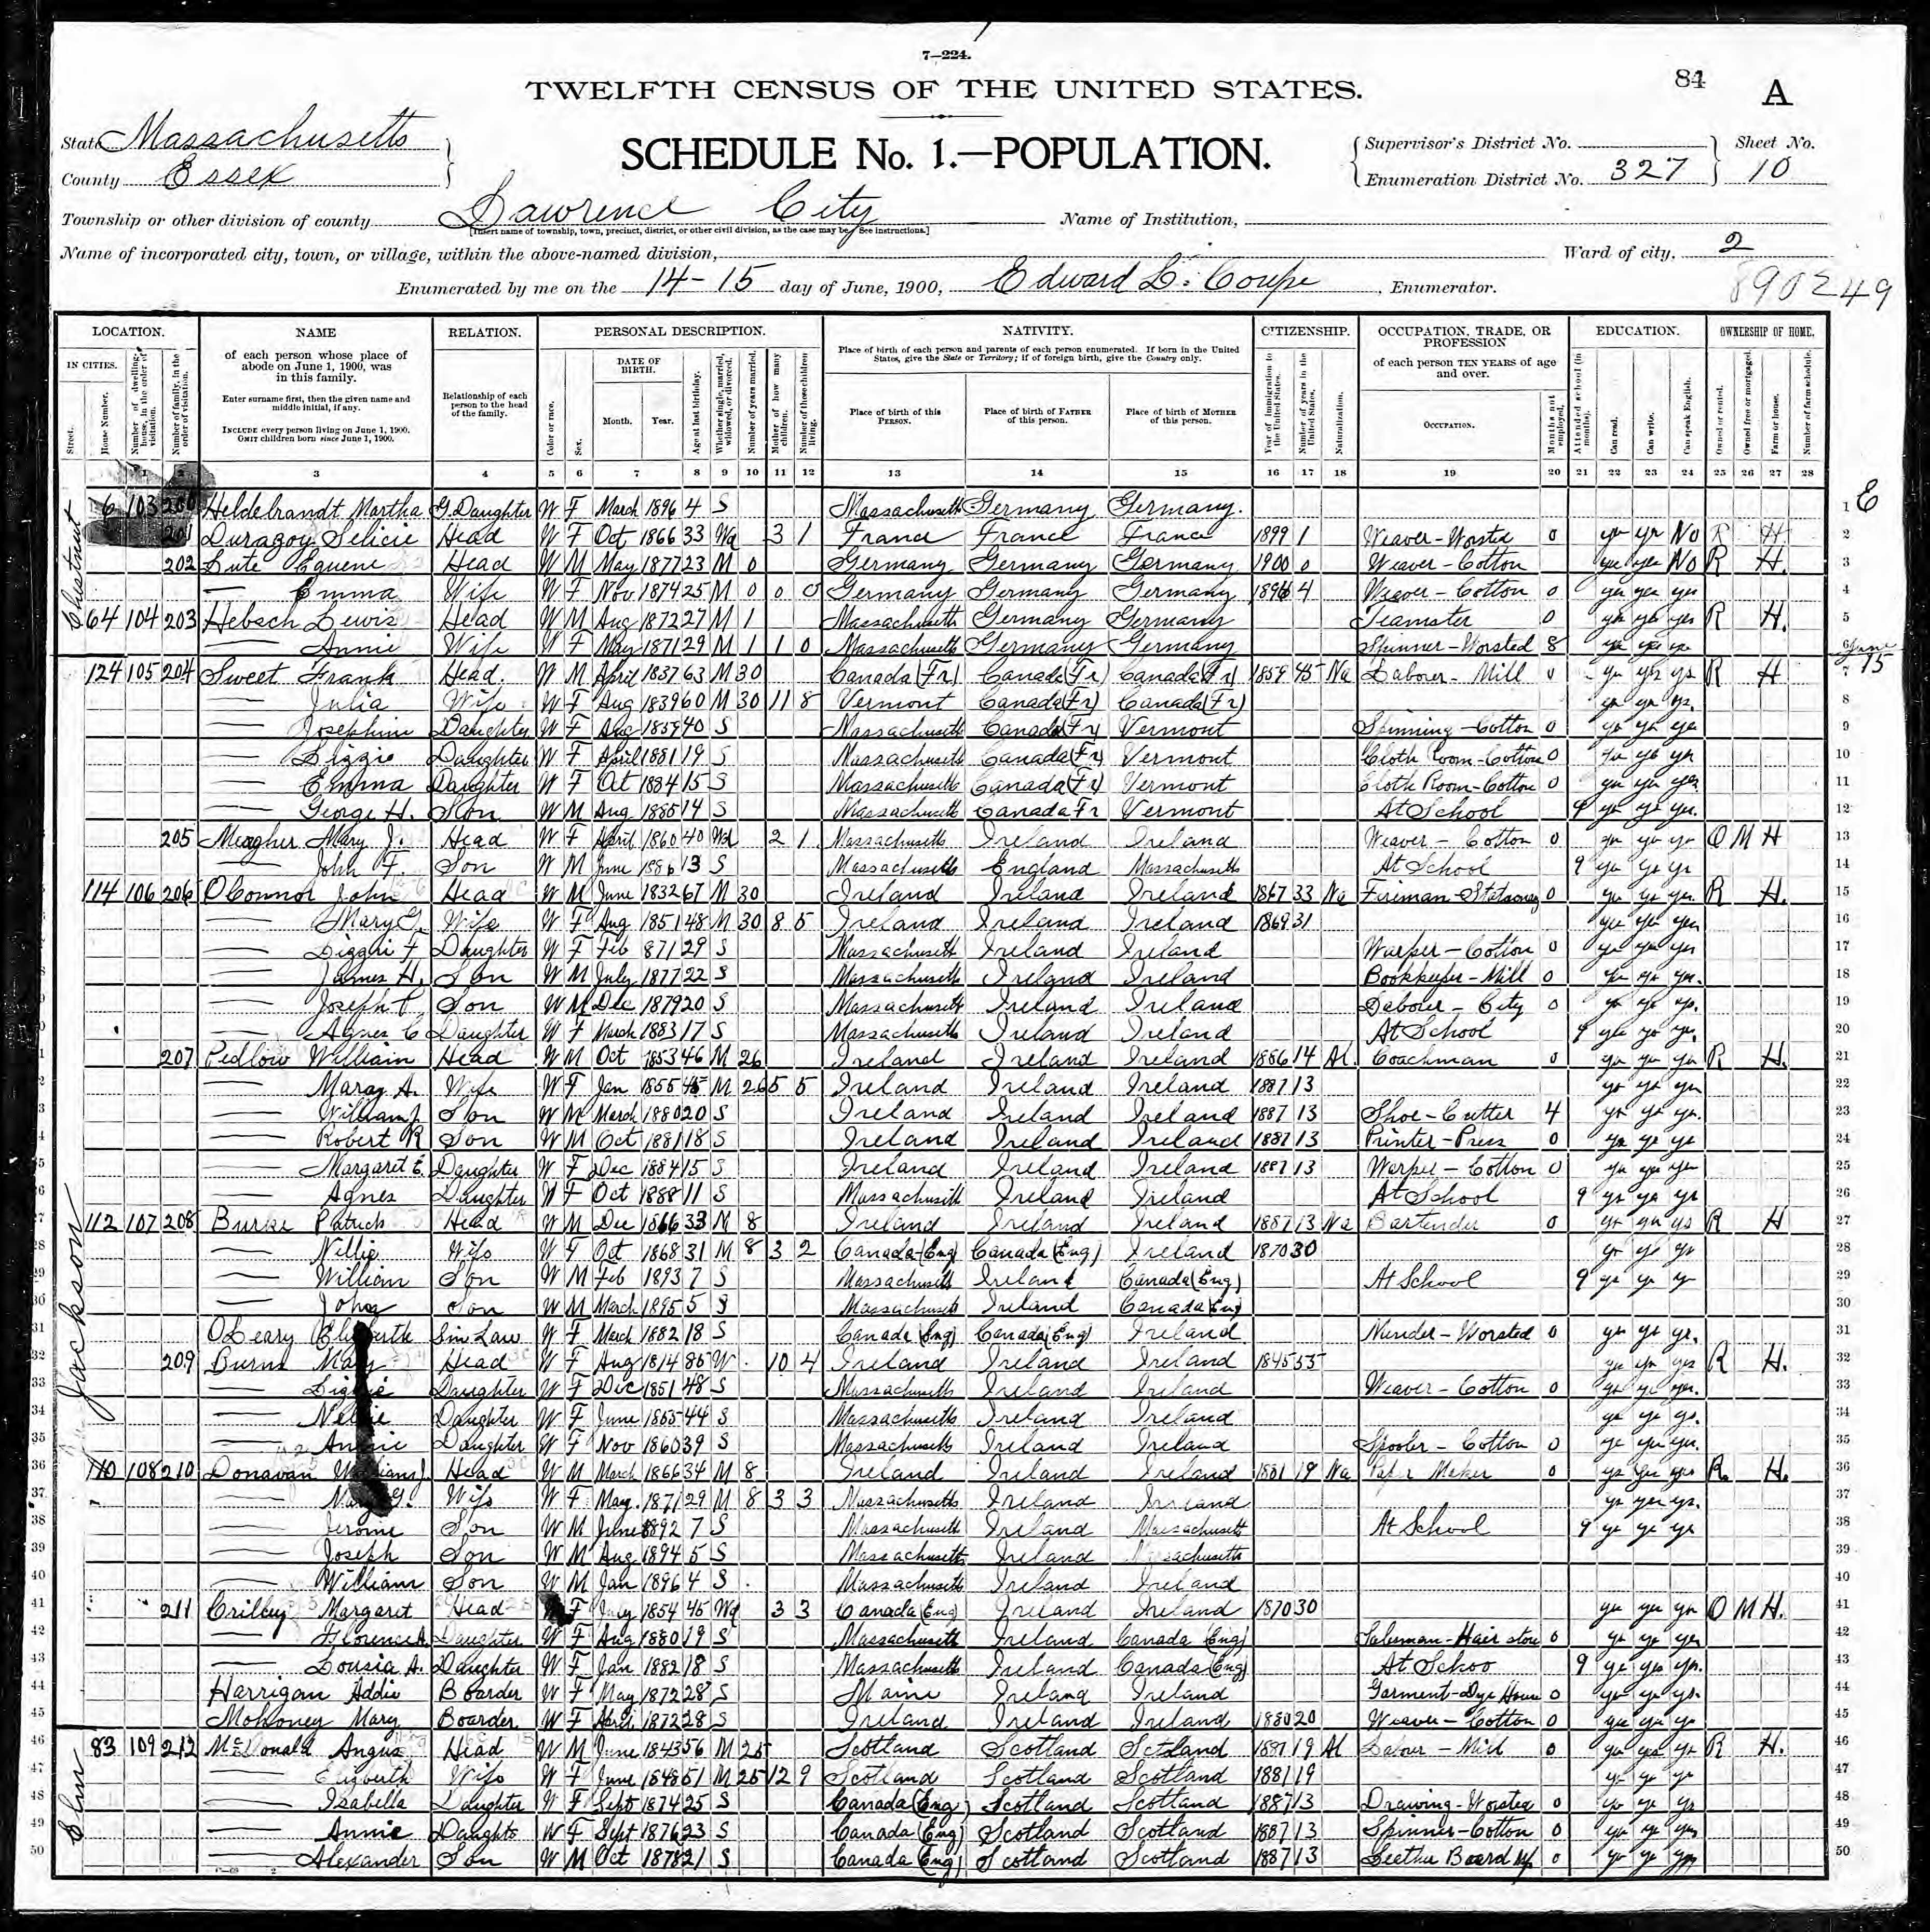 7—224.
TWELFTH CENSUS OF THE UNITED STATES.
84
A
State Massachusetts
County Essex
SCHEDULE No. 1.—POPULATION.
Supervisor's District No.
Enumeration District No. 327
Sheet No.
10
Township or other division of county Lawrence City
[Insert name of township, town, precinct, district, or other civil division, as the case may be. See instructions.]
Name of Institution,
Name of incorporated city, town, or village, within the above-named division,
Ward of city, 2
Enumerated by me on the 14-15 day of June, 1900, Edward L. Coupe, Enumerator.
LOCATION.
IN CITIES.
Street.
House Number.
Number of dwelling-house, in the order of visitation.
Number of family, in the order of visitation.
NAME
of each person whose place of abode on June 1, 1900, was in this family.
Enter surname first, then the given name and middle initial, if any.
INCLUDE every person living on June 1, 1900.
OMIT children born since June 1, 1900.
RELATION.
Relationship of each person to the head of the family.
PERSONAL DESCRIPTION.
Color or race.
Sex.
DATE OF BIRTH.
Month.
Year.
Age at last birthday.
Whether single, married, widowed, or divorced.
Number of years married.
Mother of how many children.
Number of these children living.
NATIVITY.
Place of birth of each person and parents of each person enumerated. If born in the United States, give the State or Territory; if of foreign birth, give the Country only.
Place of birth of this PERSON.
Place of birth of FATHER of this person.
Place of birth of MOTHER of this person.
CITIZENSHIP.
Year of immigration to the United States.
Number of years in the United States.
Naturalization.
OCCUPATION, TRADE, OR PROFESSION
of each person TEN YEARS of age and over.
OCCUPATION.
Months not employed.
EDUCATION.
Attended school (in months).
Can read.
Can write.
Can speak English.
OWNERSHIP OF HOME.
Owned or rented.
Owned free or mortgaged.
Farm or house.
Number of farm schedule.
1 2 3 4 5 6 7 8 9 10 11 12 13 14 15 16 17 18 19 20 21 22 23 24 25 26 27 28
Chestnut
6 103 200 Heldebrandt Martha G. Daughter W F March 1896 4 S Massachusetts Germany Germany. 1
201 Head W F Oct 1866 33 Wd 3 1 France France France 1899 1 Weaver-Worsted 0 yes yes No R H 2
202 Head W M May 1877 23 M 0 Germany Germany Germany 1900 0 Weaver-Cotton yes yes No R H. 3
Emma Wife W F Nov 1874 25 M 0 0 0 Germany Germany Germany 1896 4 Weaver-Cotton 0 yes yes yes 4
64 104 203 Hebsch Lewis Head W M Aug 1872 27 M 1 Massachusetts Germany Germany Teamster 0 yes yes yes R H. 5
Annie Wife W F May 1871 29 M 1 1 0 Massachusetts Germany Germany Spinner-Worsted 8 yes yes yes 6
June 15
124 105 204 Sweet Frank Head. W M April 1837 63 M 30 Canada (Fr) Canada (Fr) Canada (Fr) 1859 45 Na Labour-Mill 0 yes yes yes R H 7
Julia Wife W F Aug 1839 60 M 30 11 8 Vermont Canada (Fr) Canada (Fr) yes yes yes. 8
Josephine Daughter W F Aug 1859 40 S Massachusetts Canada (Fr) Vermont Spinning-Cotton 0 yes yes yes 9
Lizzie Daughter W F April 1881 19 S Massachusetts Canada (Fr) Vermont Cloth Room-Cotton 0 yes yes yes 10
Emma Daughter W F Oct 1884 15 S Massachusetts Canada (Fr) Vermont Cloth Room-Cotton 0 yes yes yes 11
George H. Son W M Aug 1885 14 S Massachusetts Canada Fr Vermont At School 9 yes yes yes. 12
205 Meagher Mary J. Head W F April 1860 40 Wd 2 1 Massachusetts Ireland Ireland Weaver-Cotton 0 yes yes yes O M H 13
John F. Son W M June 1886 13 S Massachusetts England Massachusetts At School 9 yes yes yes 14
114 106 206 OConnor John Head W M June 1832 67 M 30 Ireland Ireland Ireland 1867 33 Na Fireman-Stationary 0 yes yes yes. R H. 15
Mary G. Wife W F Aug 1851 48 M 30 8 5 Ireland Ireland Ireland 1869 31 yes yes yes 16
F Daughter W F Feb 871 29 S Massachusetts Ireland Ireland Warper-Cotton 0 yes yes yes 17
James H. Son W M July 1877 22 S Massachusetts Ireland Ireland Bookkeeper-Mill 0 yes yes yes. 18
Joseph P. Son W M Dec 1879 20 S Massachusetts Ireland Ireland Labour-City 0 yes yes yes. 19
Agnes C Daughter W F March 1883 17 S Massachusetts Ireland Ireland At School 9 yes yes yes. 20
207 Pedlow William Head W M Oct 1853 46 M 26 Ireland Ireland Ireland 1886 14 Al. Coachman 0 yes yes yes R H. 21
Maray A. Wife W F Jan 1855 45 M 26 5 5 Ireland Ireland Ireland 1887 13 yes yes yes 22
William J Son W M March 1880 20 S Ireland Ireland Ireland 1887 13 Shoe-Cutter 4 yes yes yes. 23
Robert R Son W M Oct 1881 18 S Ireland Ireland Ireland 1887 13 Printer-Press 0 yes yes yes 24
Margaret E. Daughter W F Dec 1884 15 S Ireland Ireland Ireland 1887 13 Warper-Cotton 0 yes yes yes 25
Agnes Daughter W F Oct 1888 11 S Massachusetts Ireland Ireland At School 9 yes yes yes 26
Jackson
112 107 208 Burke Patrick Head W M Dec 1866 33 M 8 Ireland Ireland Ireland 1887 13 Na Bartender 0 yes yes yes R H 27
Nellie Wife W F Oct 1868 31 M 8 3 2 Canada-(Eng) Canada (Eng) Ireland 1870 30 yes yes yes 28
William Son W M Feb 1893 7 S Massachusetts Ireland Canada (Eng) At School 9 yes yes yes 29
John Son W M March 1895 5 S Massachusetts Ireland Canada (Eng 30
OLeary Sin Law W F March 1882 18 S Canada (Eng) Canada (Eng) Ireland -Worsted 0 yes yes yes. 31
209 Burns Mary Head W F Aug 1814 85 W 10 4 Ireland Ireland Ireland 1845 55 yes yes yes R H. 32
Lizzie Daughter W F Dec 1851 48 S Massachusetts Ireland Ireland Weaver-Cotton 0 yes yes yes. 33
Nellie Daughter W F June 1855 44 S Massachusetts Ireland Ireland yes yes yes. 34
Annie Daughter W F Nov 1860 39 S Massachusetts Ireland Ireland Spooler-Cotton 0 yes yes yes. 35
110 108 210 Donavan William J. Head W M March 1866 34 M 8 Ireland Ireland Ireland 1881 19 Na Paper Maker 0 yes yes yes R. H. 36
Mary G. Wife W F May. 1871 29 M 8 3 3 Massachusetts Ireland Ireland yes yes yes. 37
Jerome Son W M June 1892 7 S Massachusetts Ireland Massachusetts At School 9 yes yes yes 38
Joseph Son W M Aug 1894 5 S Massachusetts Ireland Massachusetts 39
William Son W M Jan 1896 4 S Massachusetts Ireland Ireland 40
211 Crilley Margaret Head W F July 1854 45 Wd 3 3 Canada (Eng) Ireland Ireland 1870 30 yes yes yes O M H. 41
Florence A. Daughter W F Aug 1880 19 S Massachusetts Ireland Canada (Eng) Salesman-Hair store 0 yes yes yes 42
Lousia A. Daughter W F Jan 1882 18 S Massachusetts Ireland Canada (Eng) At Schoo 9 yes yes yes. 43
Harrigan Addie Boarder W F May 1872 28 S Maine Ireland Ireland Garment-Dye House 0 yes yes yes. 44
Mohoney Mary Boarder W F April 1872 28 S Ireland Ireland Ireland 1880 20 Weaver-Cotton 0 yes yes yes 45
Elm
83 109 212 McDonald Angus Head W M June 1843 56 M 25 Scotland Scotland Scotland 1881 19 Al Labour-Mill 0 yes yes yes R H. 46
Wife W F June 1848 51 M 25 12 9 Scotland Scotland Scotland 1881 19 yes yes yes 47
Izabella Daughter W F Sept 1874 25 S Canada (Eng) Scotland Scotland 1887 13 Drawing-Worsted 0 yes yes yes 48
Annie Daughte W F Sept 1876 23 S Canada (Eng) Scotland Scotland 1887 13 Spinner-Cotton 0 yes yes yes 49
Alexander Son W M Oct 1878 21 S Canada (Eng) Scotland Scotland 1887 13 Leather Board 0 yes yes yes 50